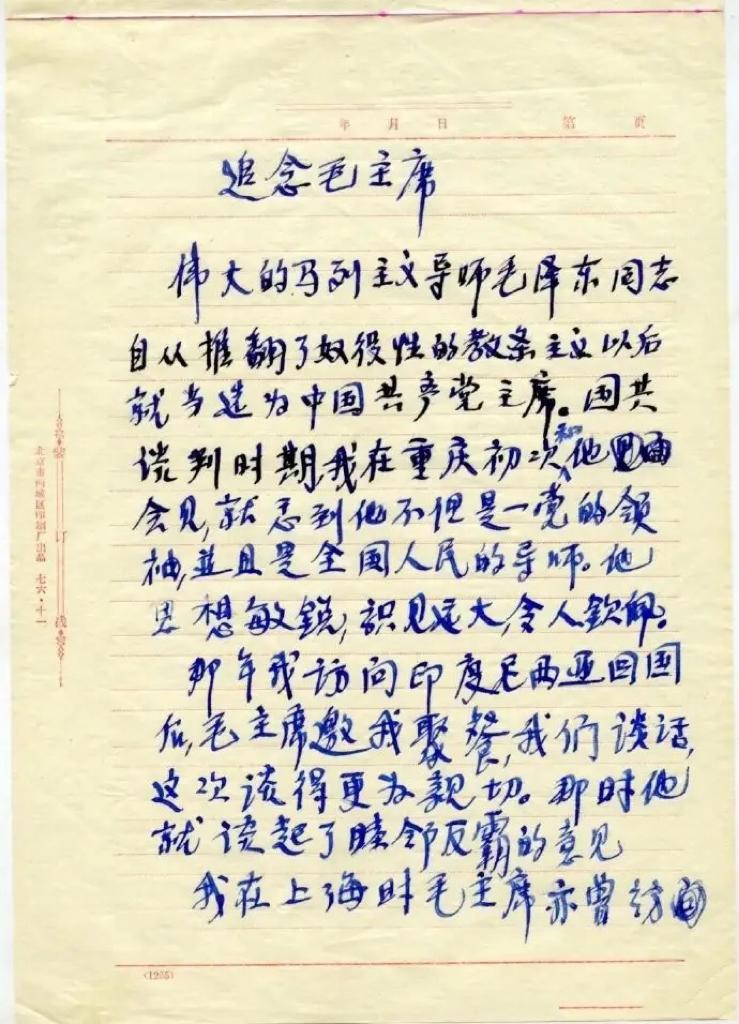 年 月 日 第 页
追念毛主席
伟大的马列主义导师毛泽东同志
自从推翻了奴役性的教条主义以后
就当选为中国共产党主席。国共
谈判时期,我在重庆初次和他
会见,就感到他不但是一党的领
袖,並且是全国人民的导师。他
思想敏锐,識见远大,令人钦佩。
那年我访问印度尼西亚回国
后,毛主席邀我聚餐,我们谈话,
这次谈得更为親切。那时他
就谈起了睦邻反霸的意见
我在上海时毛主席亦曾访
装订线
北京市西城区印刷厂出品 七六·十一
(1265)